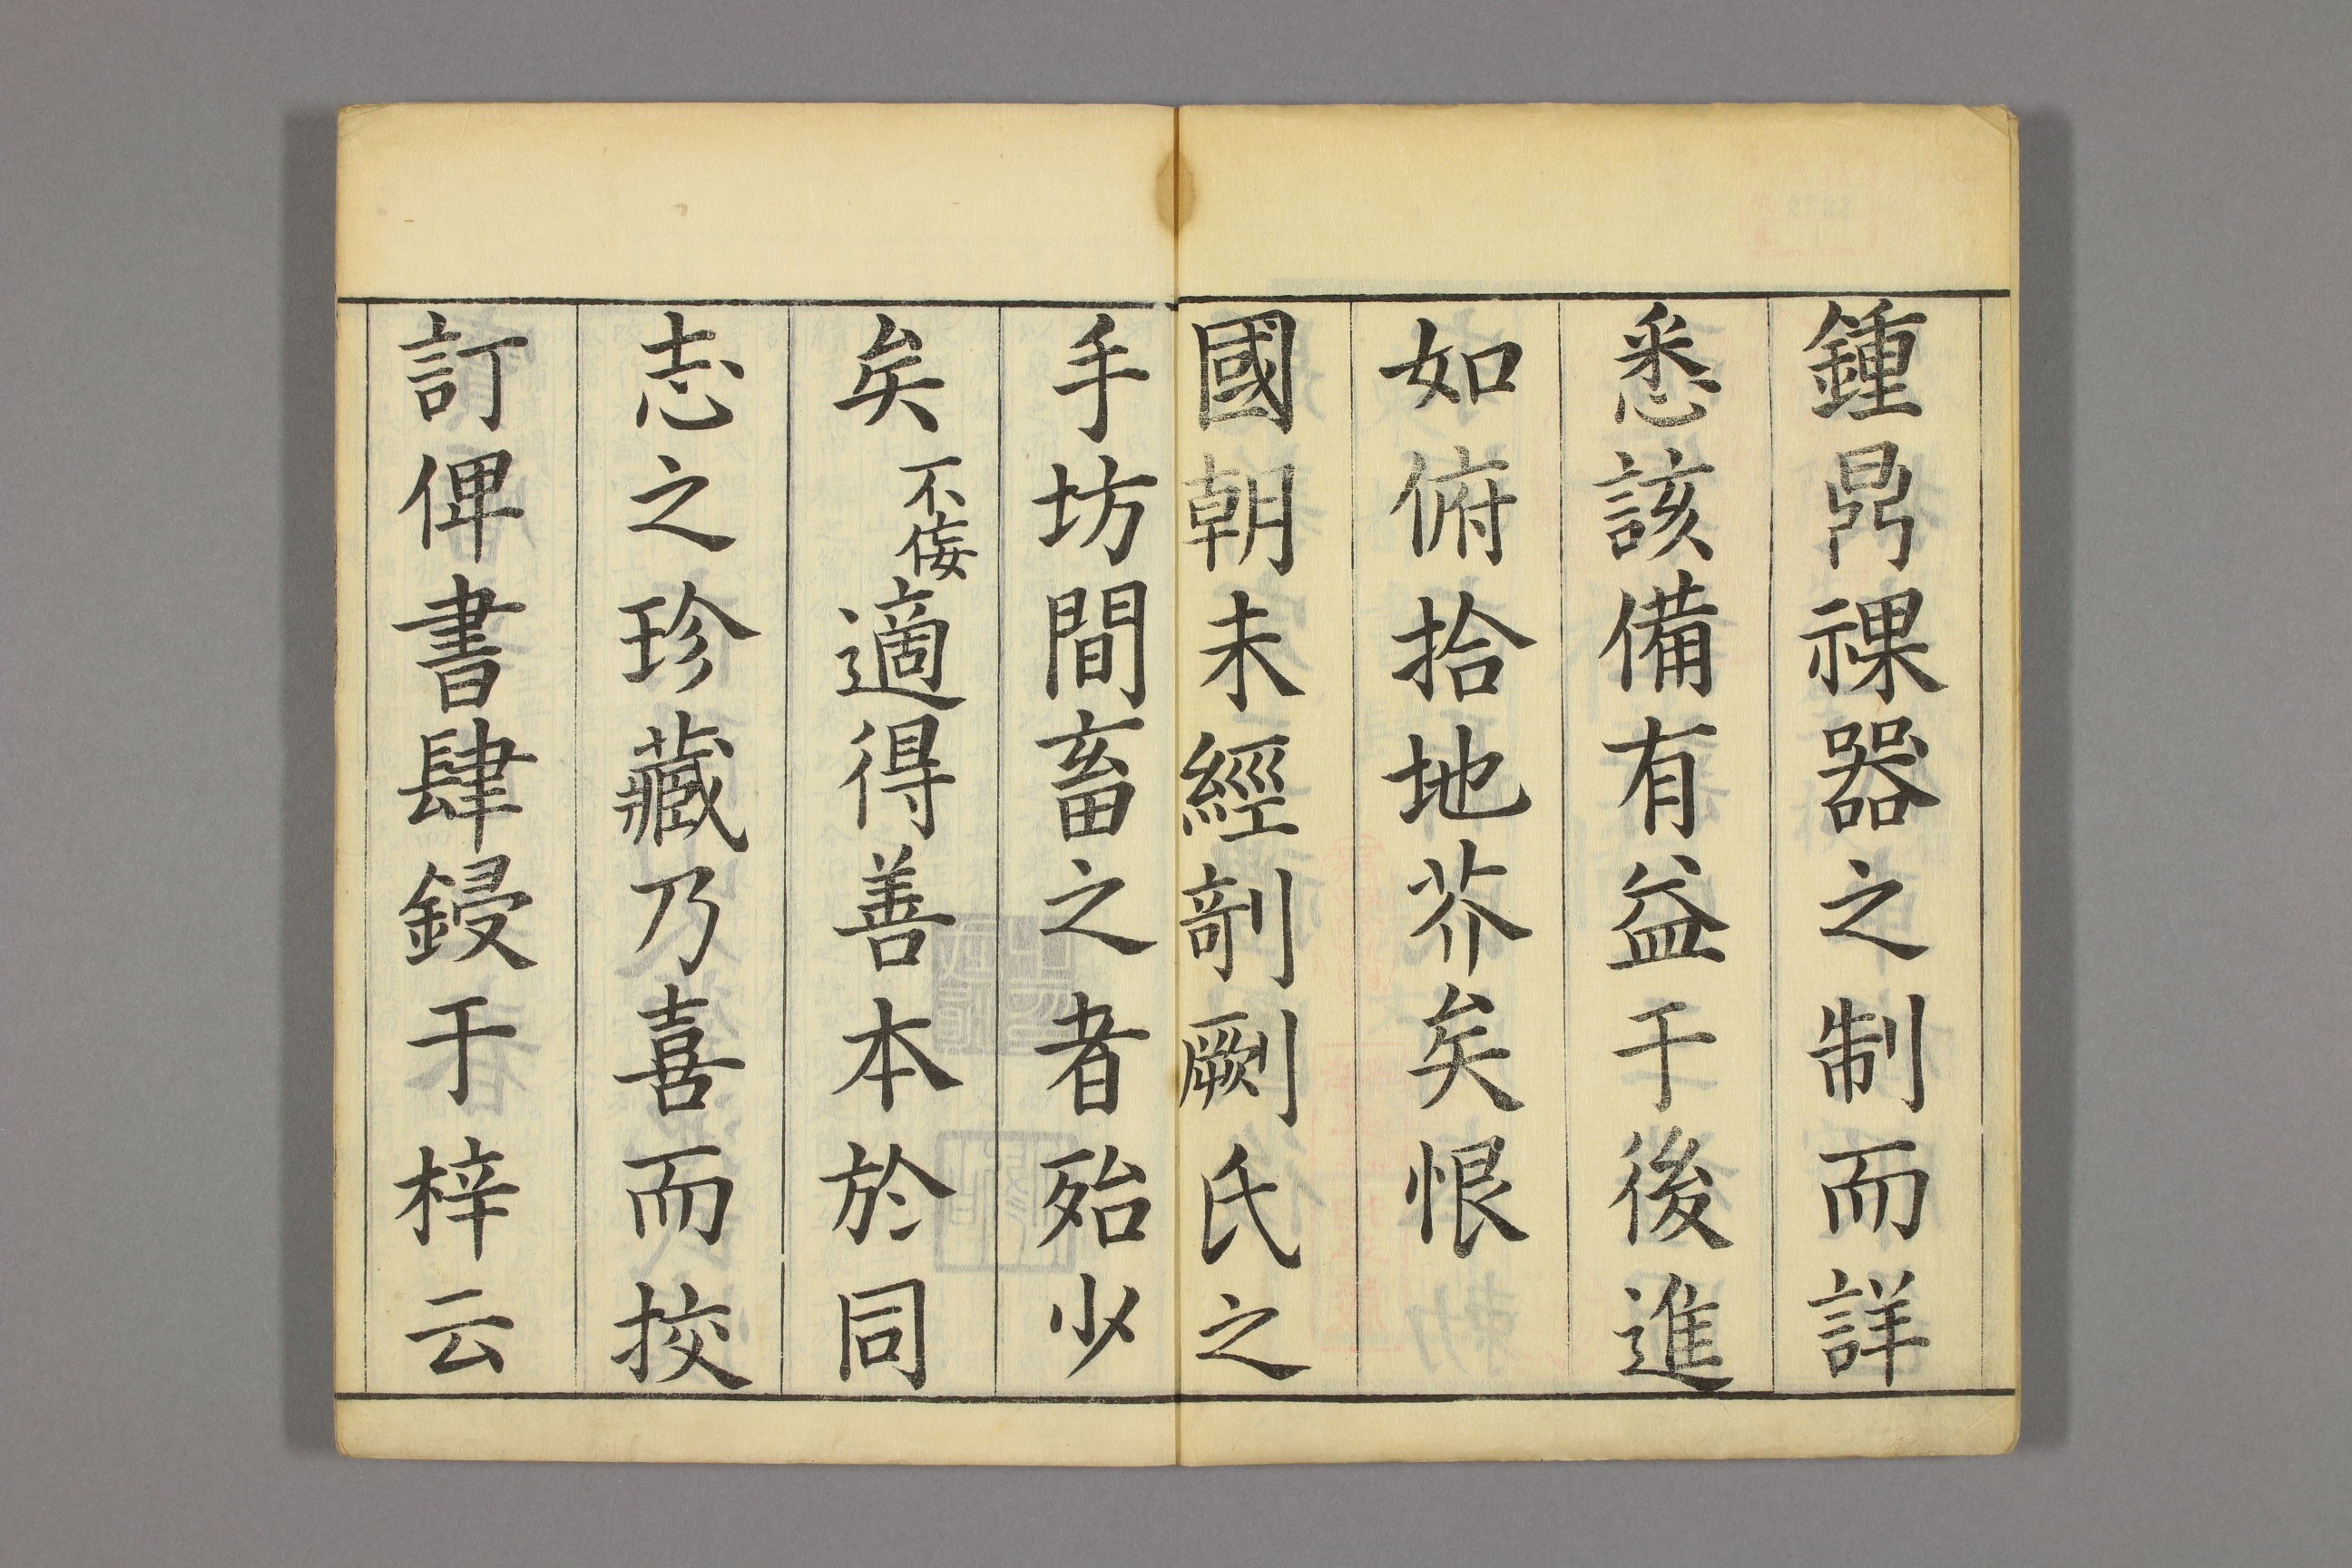 鍾鼎祼器之制而詳
悉該備有益于後進
如俯拾地芥矣恨
國朝未經剞劂氏之
手坊間畜之者殆少
矣不侫適得善本於同
志之珍藏乃喜而挍
訂俾書肆鋟于梓云